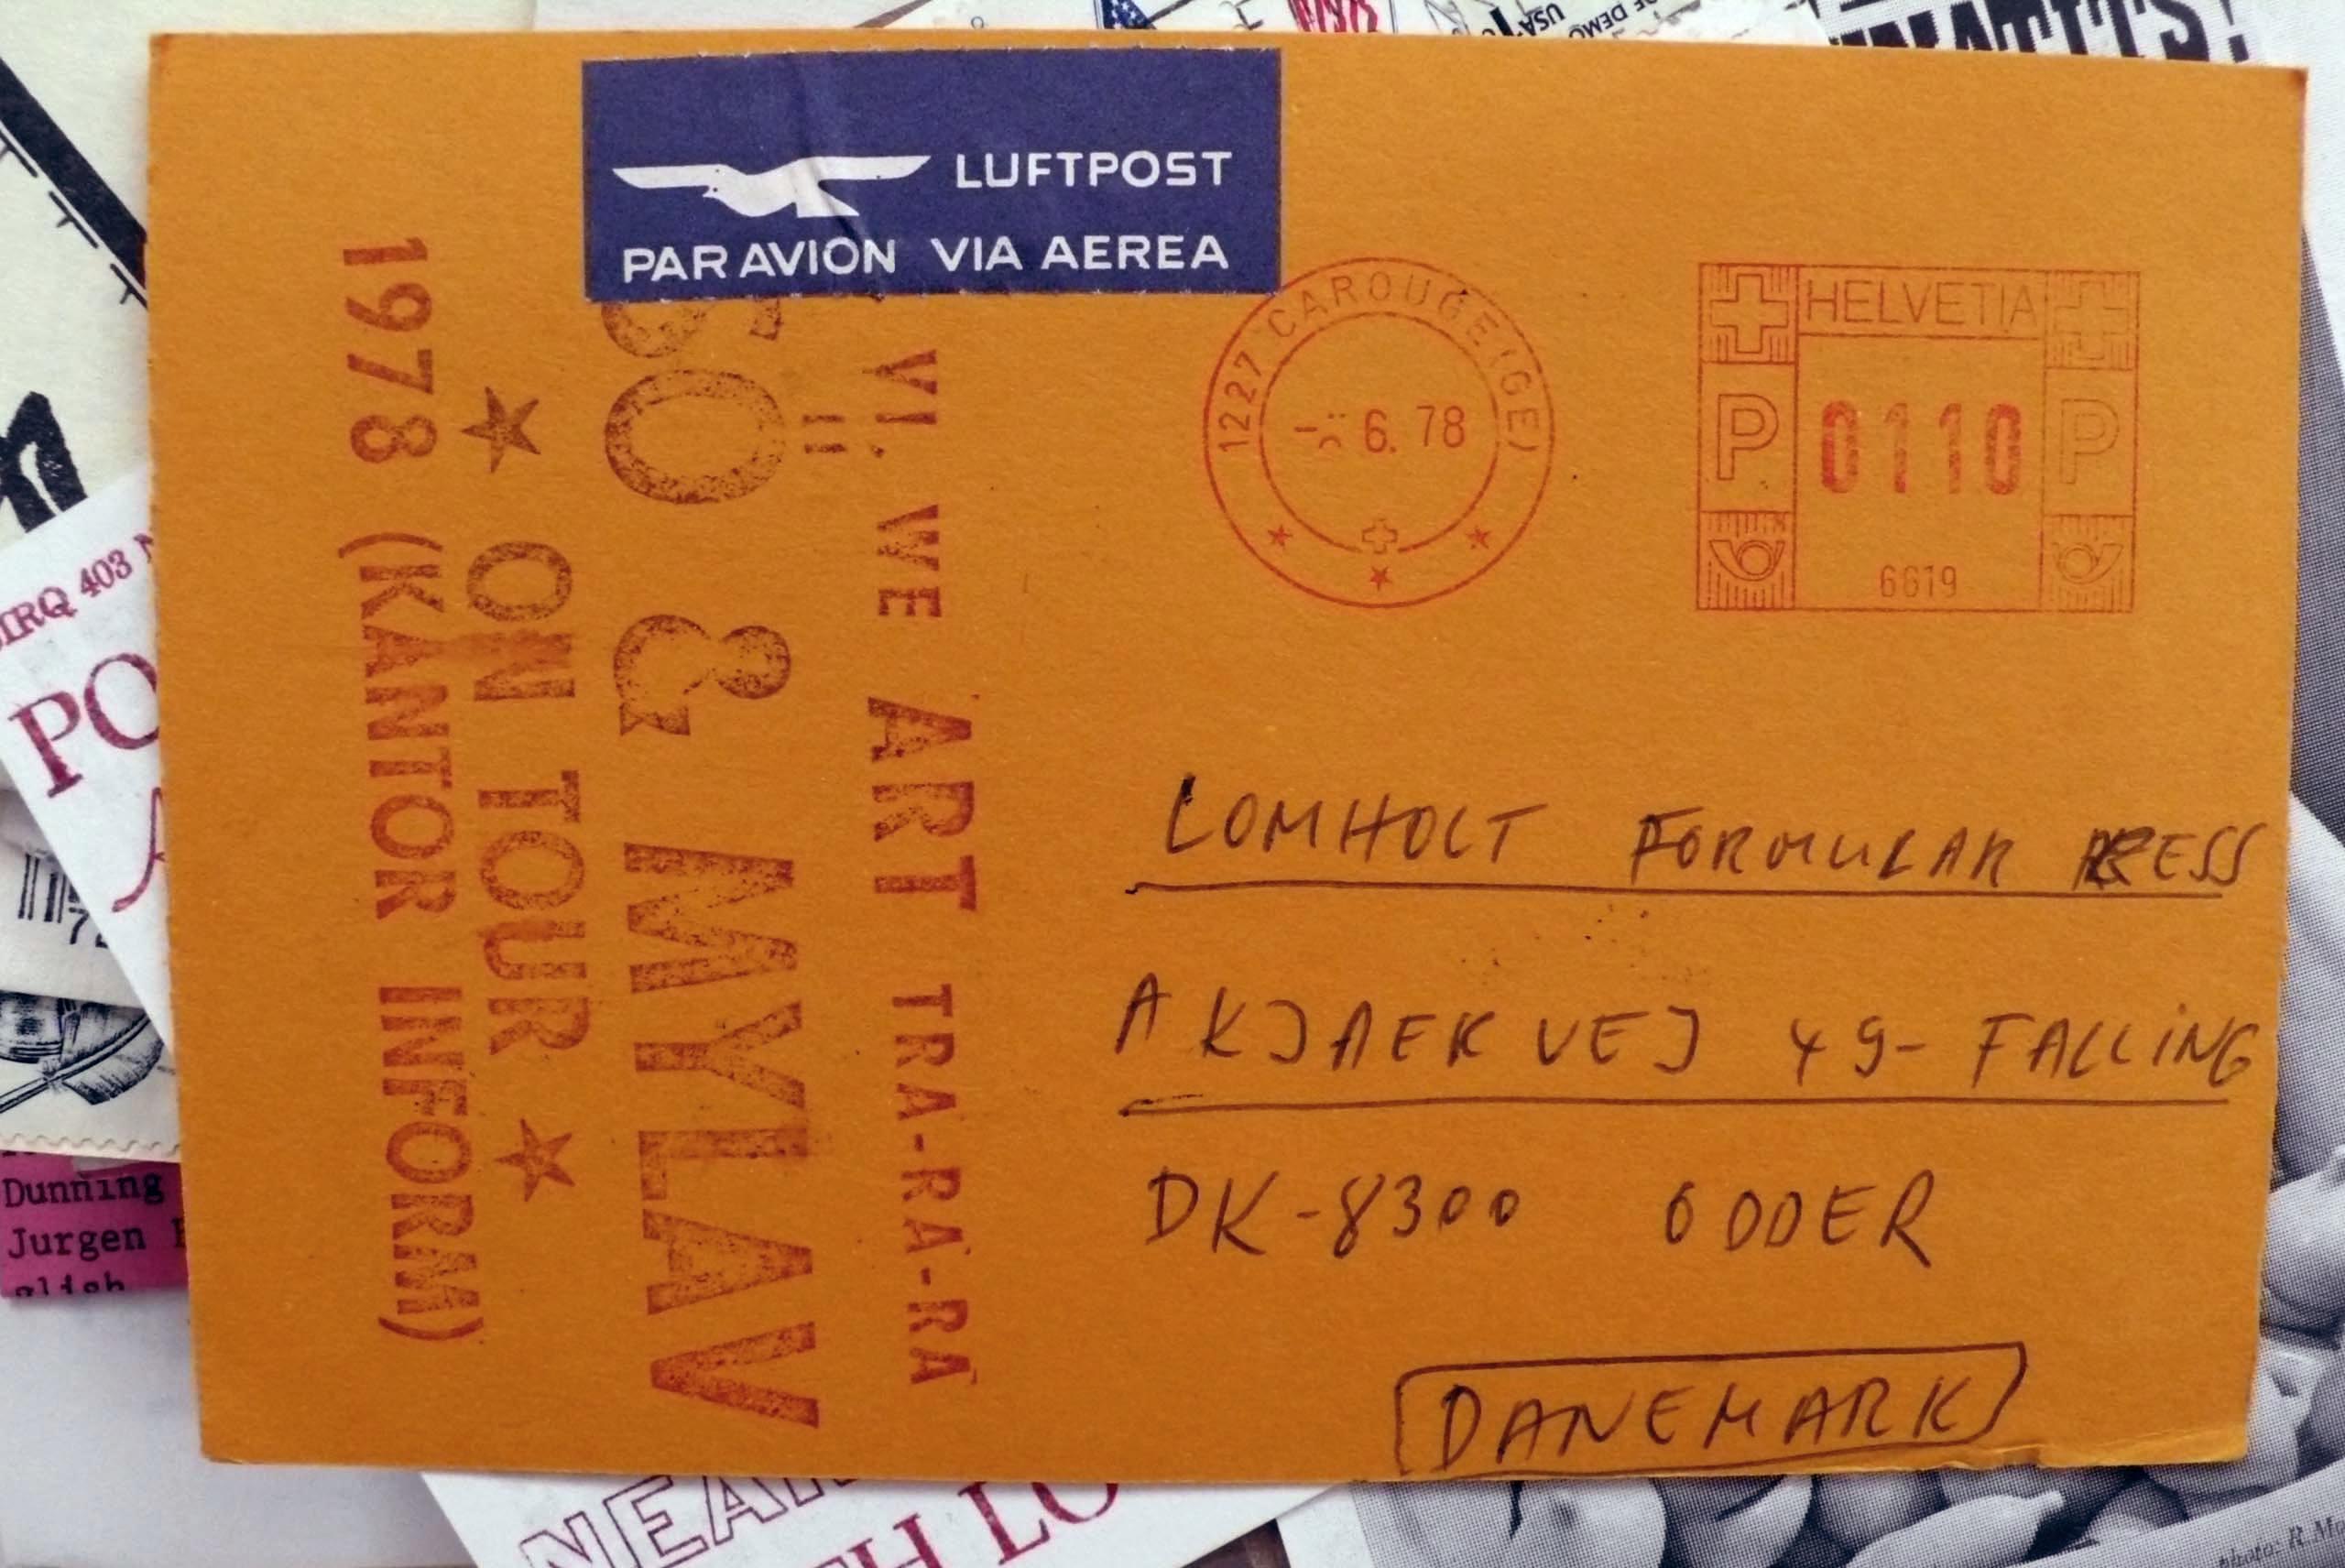 LUFTPOST
PAR AVION VIA AEREA
1227 CAROUGE (GE)
6. 78
HELVETIA
P 0110 P
6619
VI. WE ART TRA-RA-RA
& MYLAV
★ ON TOUR ★
1978 (KANTOR INFORM)
LOMHOLT FORMULAR PRESS
AKJAERVEJ 49 - FALLING
DK-8300 ODDER
DANEMARK
IRQ 403
PO
Dunning
Jurgen
USA
NEAR
photo: R.